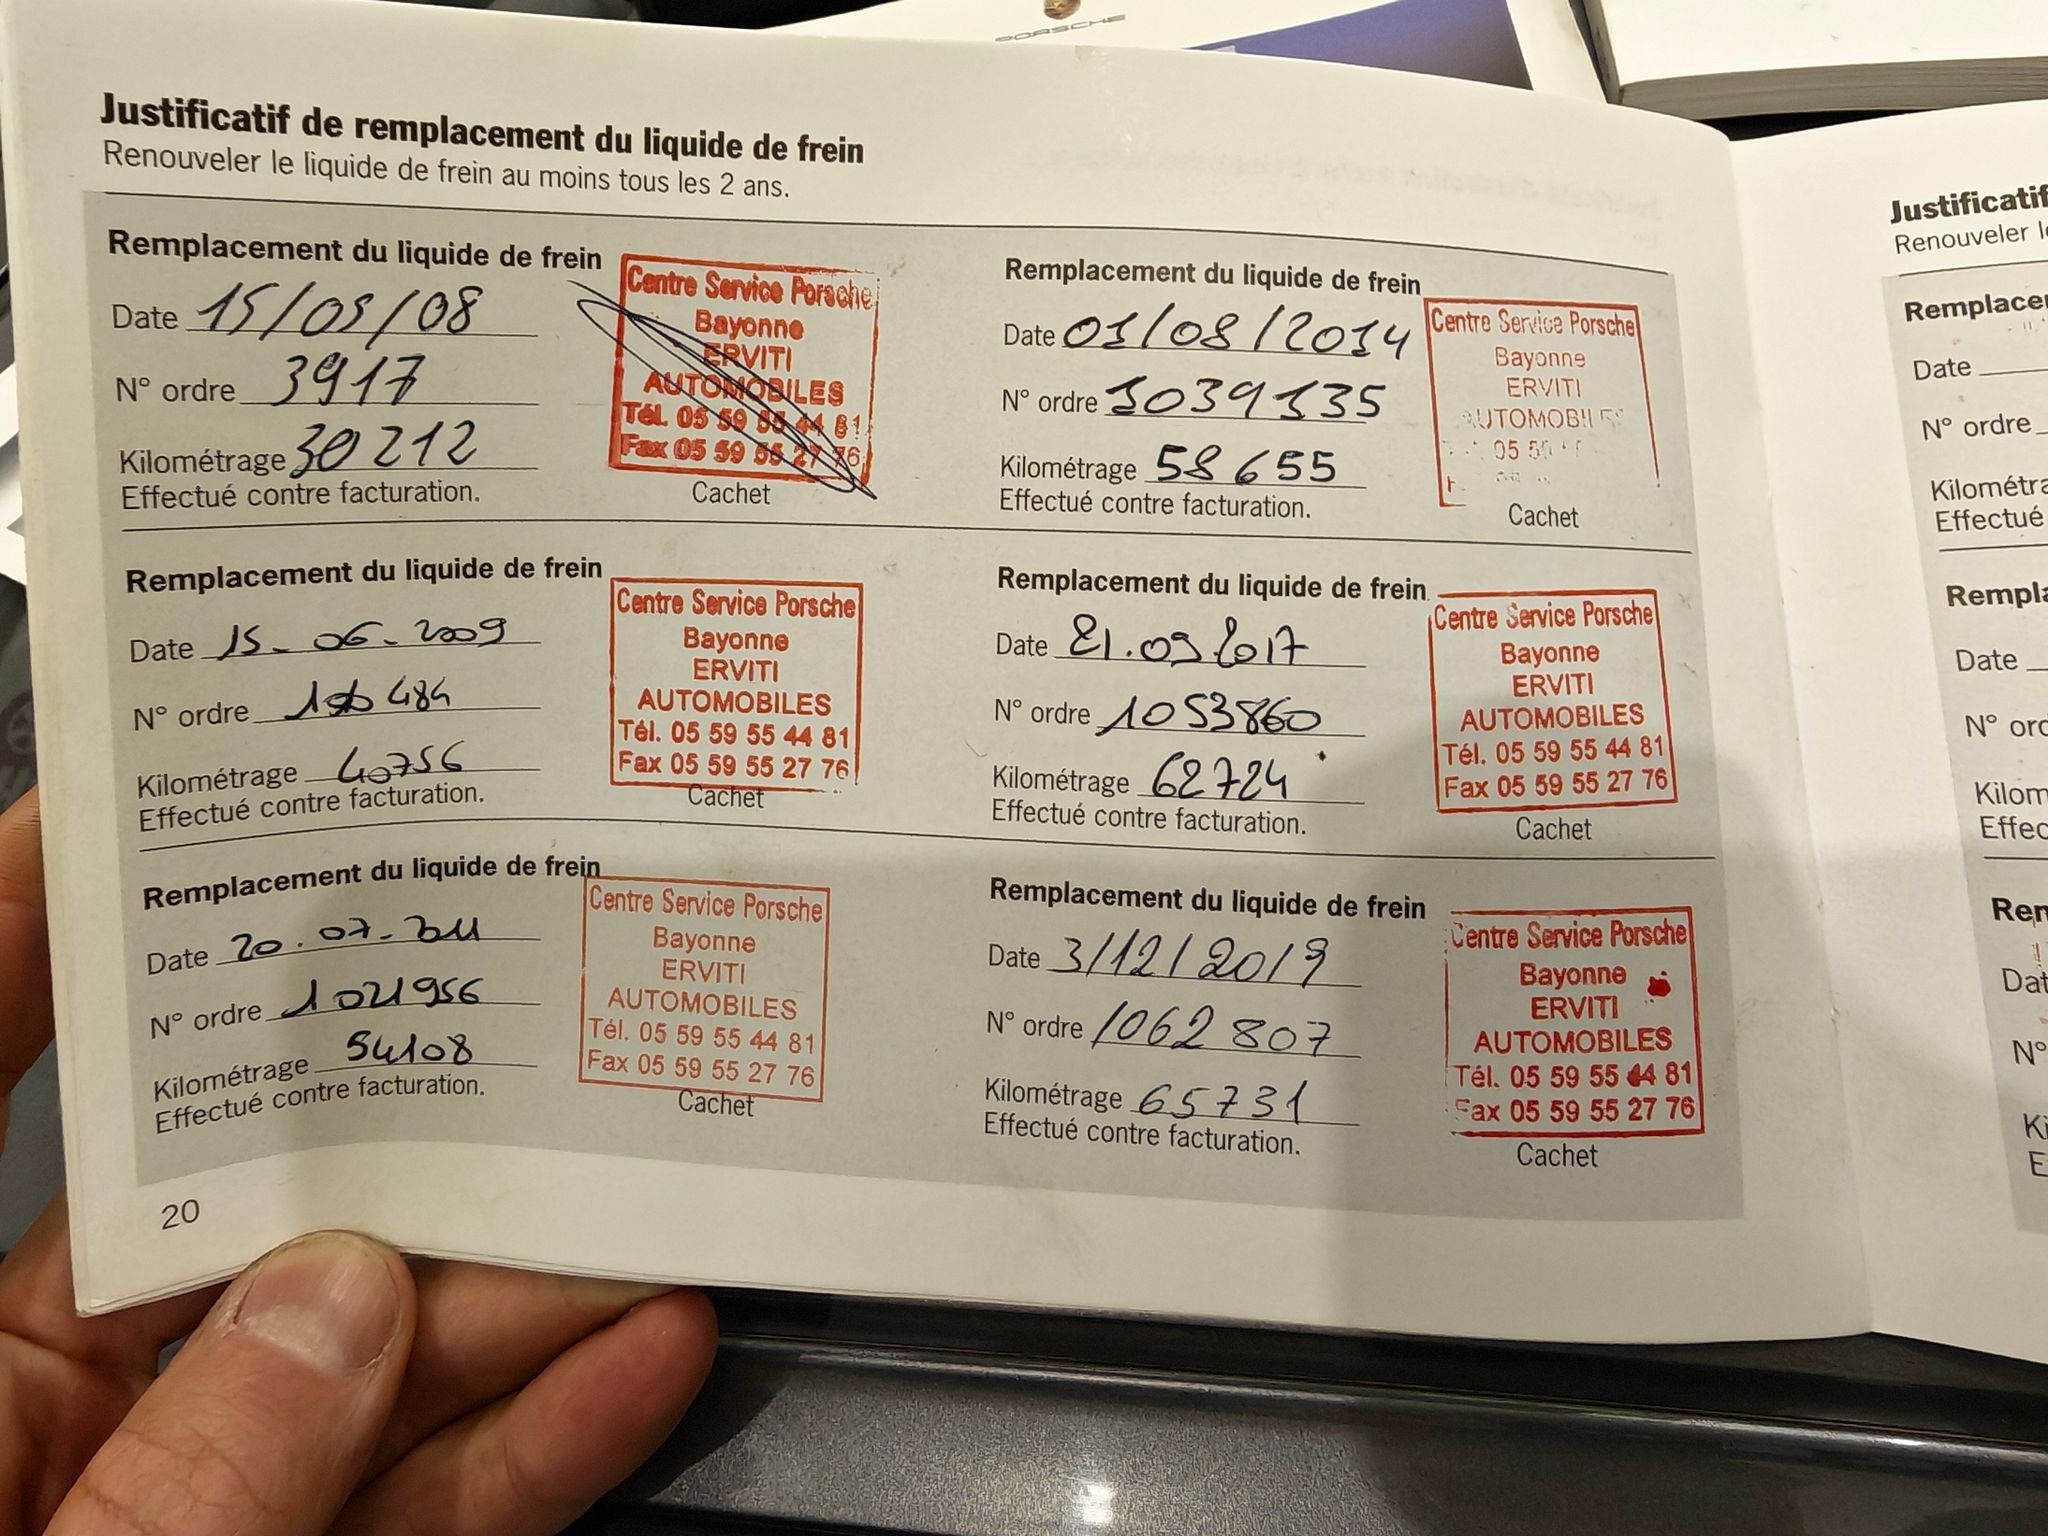 PORSCHE
Justificatif de remplacement du liquide de frein
Renouveler le liquide de frein au moins tous les 2 ans.
Remplacement du liquide de frein
Date 15/09/08
N° ordre 3917
Kilométrage 30212
Effectué contre facturation.
Centre Service Porsche
Bayonne
ERVITI
AUTOMOBILES
Tél. 05 59 55 44 81
Fax 05 59 55 27 76
Cachet
Remplacement du liquide de frein
Date 15-06-2009
N° ordre
Kilométrage 40756
Effectué contre facturation.
Centre Service Porsche
Bayonne
ERVITI
AUTOMOBILES
Tél. 05 59 55 44 81
Fax 05 59 55 27 76
Cachet
Remplacement du liquide de frein
Date 20.07-2011
N° ordre 1021956
Kilométrage 54108
Effectué contre facturation.
Centre Service Porsche
Bayonne
ERVITI
AUTOMOBILES
Tél. 05 59 55 44 81
Fax 05 59 55 27 76
Cachet
Remplacement du liquide de frein
Date 01/08/2014
N° ordre 1039135
Kilométrage 58655
Effectué contre facturation.
Centre Service Porsche
Bayonne
ERVITI
AUTOMOBILES
05
Cachet
Remplacement du liquide de frein
Date 21.09.2017
N° ordre 1053860
Kilométrage 62724
Effectué contre facturation.
Centre Service Porsche
Bayonne
ERVITI
AUTOMOBILES
Tél. 05 59 55 44 81
Fax 05 59 55 27 76
Cachet
Remplacement du liquide de frein
Date 3/12/2019
N° ordre 1062807
Kilométrage 65731
Effectué contre facturation.
Centre Service Porsche
Bayonne
ERVITI
AUTOMOBILES
Tél. 05 59 55 44 81
Fax 05 59 55 27 76
Cachet
20
Justificatif
Renouveler
Date
N° ordre
Effectué
Date